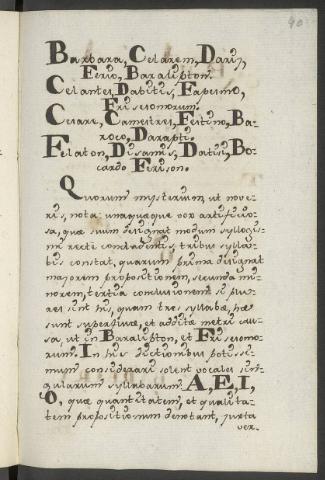 90
Barbara, Celarem, Darij,
Ferio, Baralipton.
Celantes, Dabitis, Fapesmo,
Frisesomorum.
Cesare, Camestres, Festino, Ba-
roco, Darapti.
Felaton, Disamis, Datisi, Bo-
cardo Ferison.
Quorum mysterium, ut nove-
ris, nota: unaquaque vox artificio-
sa, quæ suum designat modum syllogis-
mi recte concludentis, tribus sylla-
bis constat, quarum prima designat
majorem propositionem, secunda mi-
norem, tertia conclusionem: si plu-
res sint his, quam tres syllabæ, hæ
sunt superfluæ, et additæ metri cau-
sa, ut in Baralipton, et Frisesomo-
rum. In his dictionibus potis-
simum considerari solent vocales sin-
gularum syllabarum A, E, I,
O, quæ quantitatem, et qualita-
tem propositionum denotant, juxta
ver-